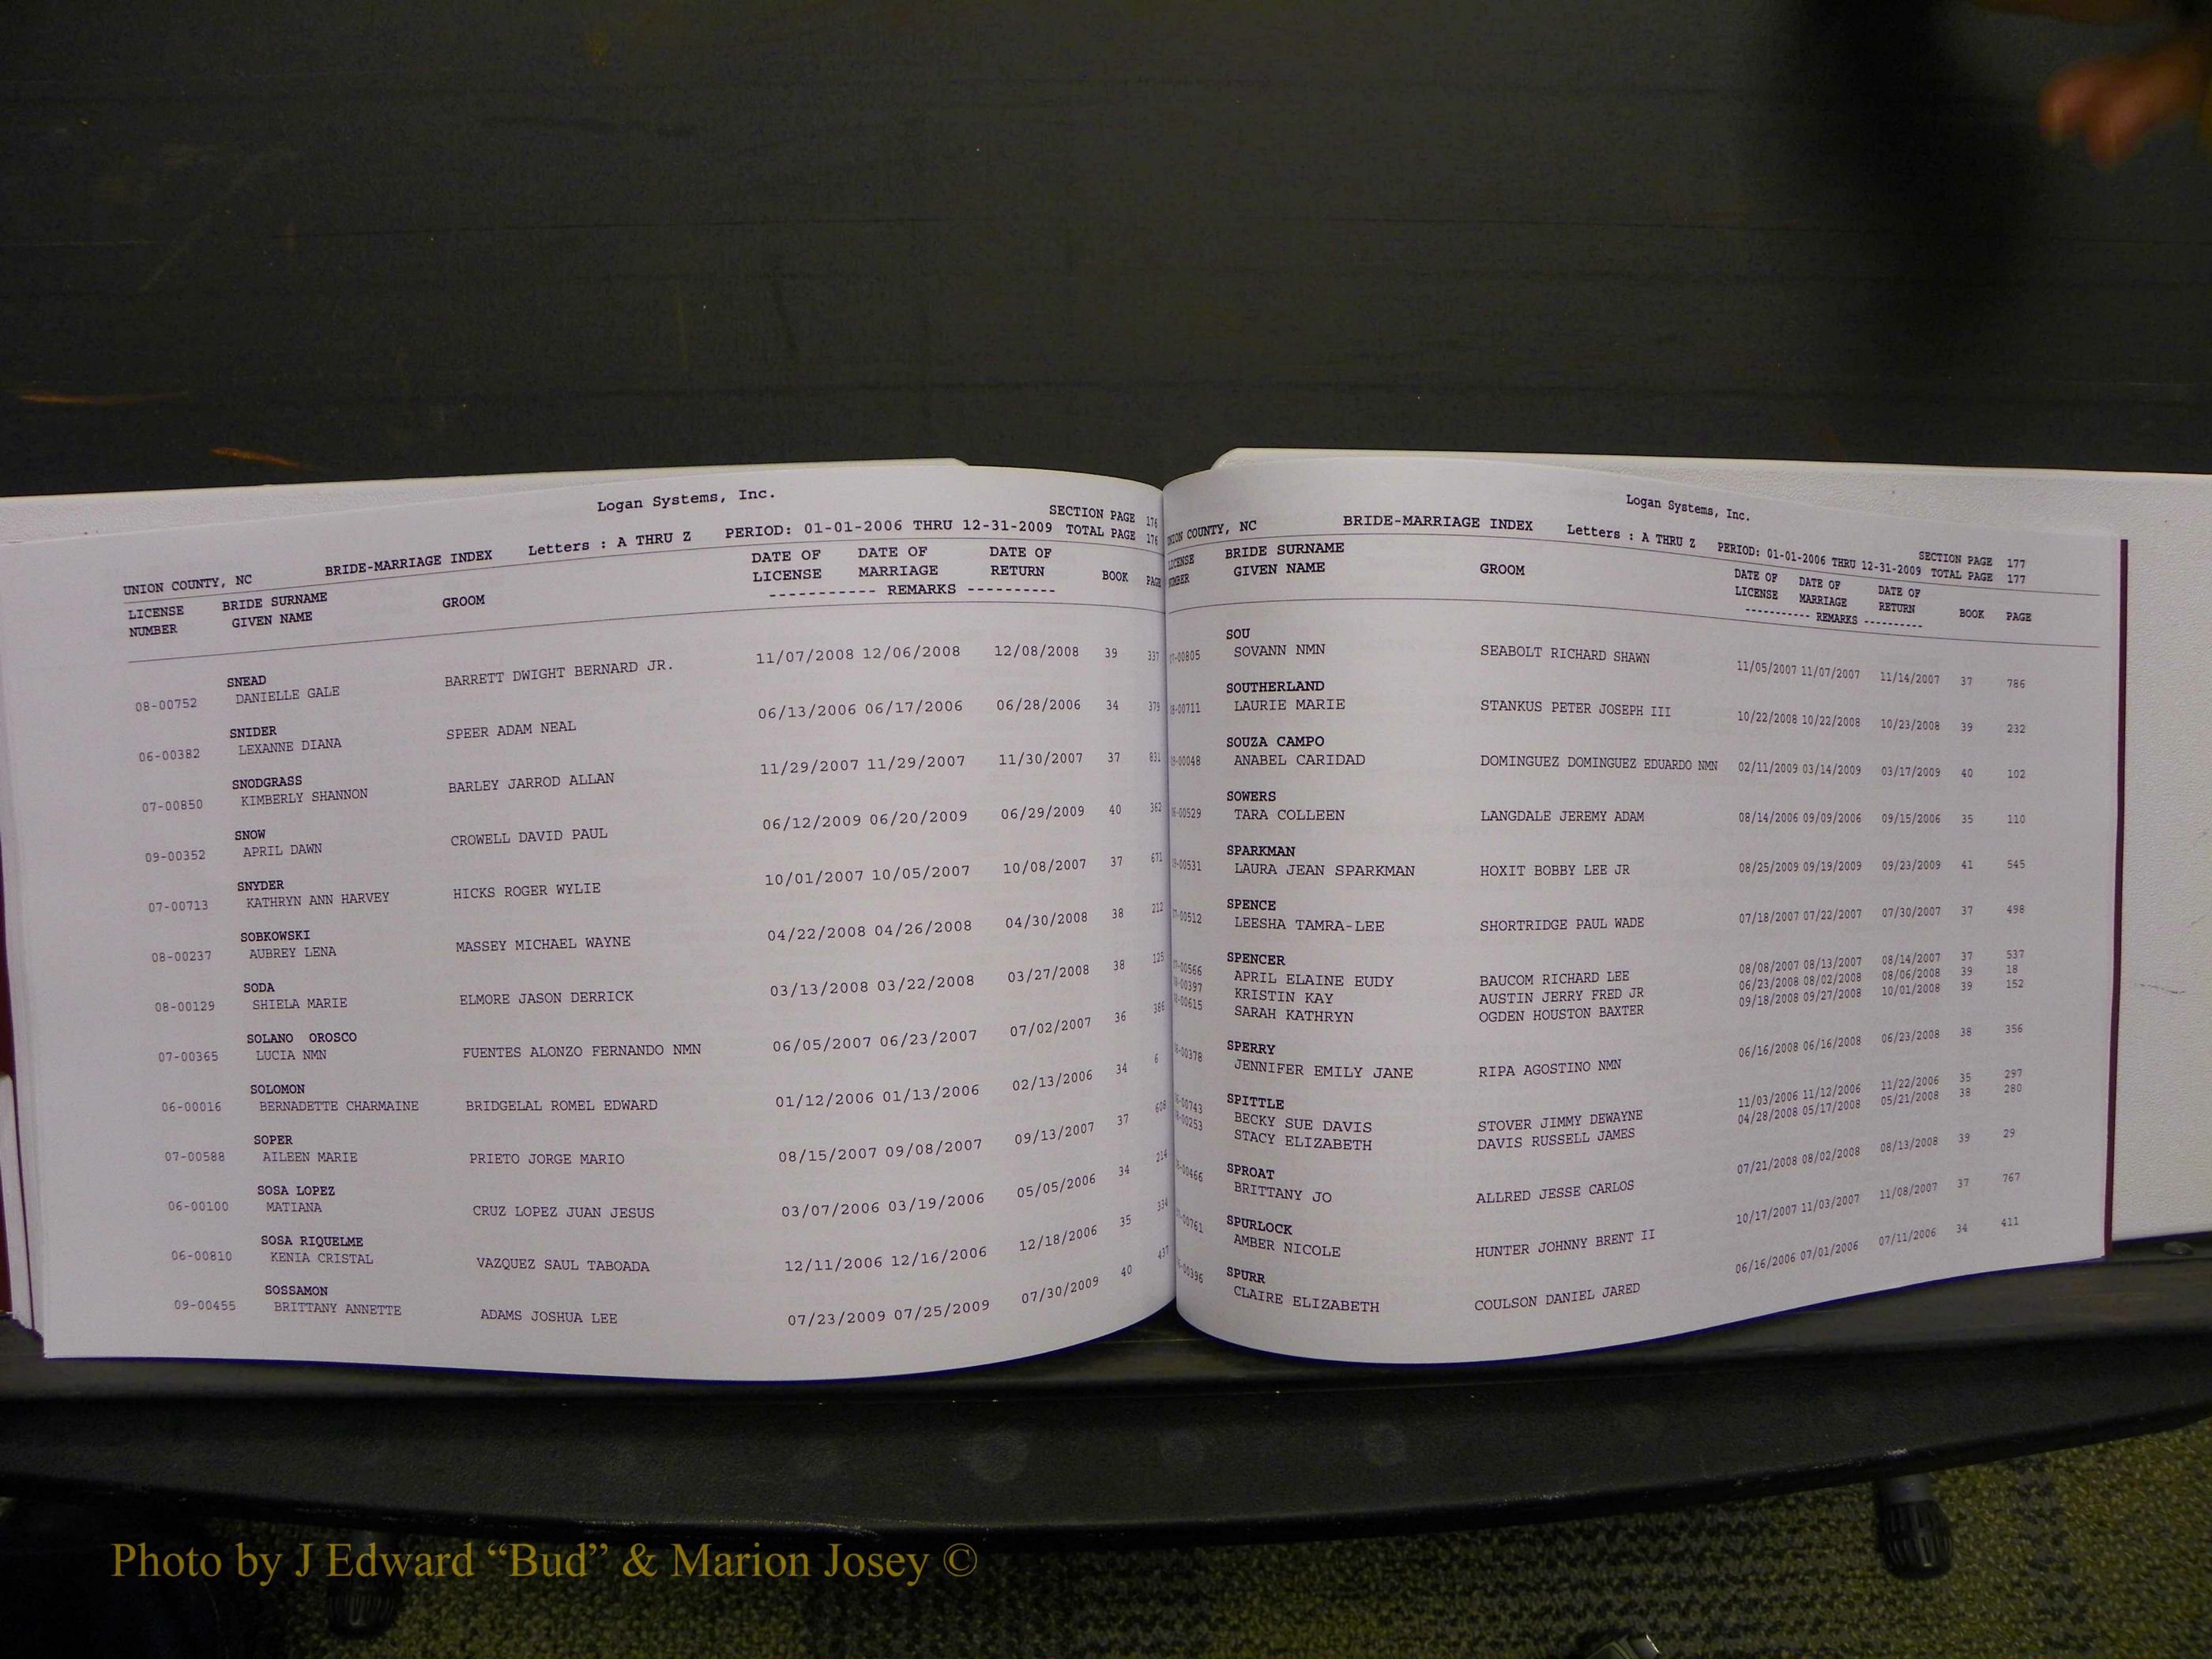 Logan Systems, Inc.
SECTION PAGE 176
UNION COUNTY, NC BRIDE-MARRIAGE INDEX Letters : A THRU Z PERIOD: 01-01-2006 THRU 12-31-2009 TOTAL PAGE 176
LICENSE NUMBER BRIDE SURNAME GIVEN NAME GROOM DATE OF LICENSE DATE OF MARRIAGE DATE OF RETURN BOOK PAGE
----------- REMARKS ----------
SNEAD
08-00752 DANIELLE GALE BARRETT DWIGHT BERNARD JR. 11/07/2008 12/06/2008 12/08/2008 39 337
SNIDER
06-00382 LEXANNE DIANA SPEER ADAM NEAL 06/13/2006 06/17/2006 06/28/2006 34 379
SNODGRASS
07-00850 KIMBERLY SHANNON BARLEY JARROD ALLAN 11/29/2007 11/29/2007 11/30/2007 37 831
SNOW
09-00352 APRIL DAWN CROWELL DAVID PAUL 06/12/2009 06/20/2009 06/29/2009 40 362
SNYDER
07-00713 KATHRYN ANN HARVEY HICKS ROGER WYLIE 10/01/2007 10/05/2007 10/08/2007 37 671
SOBKOWSKI
08-00237 AUBREY LENA MASSEY MICHAEL WAYNE 04/22/2008 04/26/2008 04/30/2008 38 212
SODA
08-00129 SHIELA MARIE ELMORE JASON DERRICK 03/13/2008 03/22/2008 03/27/2008 38 125
SOLANO OROSCO
07-00365 LUCIA NMN FUENTES ALONZO FERNANDO NMN 06/05/2007 06/23/2007 07/02/2007 36
SOLOMON
06-00016 BERNADETTE CHARMAINE BRIDGELAL ROMEL EDWARD 01/12/2006 01/13/2006 02/13/2006 34 6
SOPER
07-00588 AILEEN MARIE PRIETO JORGE MARIO 08/15/2007 09/08/2007 09/13/2007 37
SOSA LOPEZ
06-00100 MATIANA CRUZ LOPEZ JUAN JESUS 03/07/2006 03/19/2006 05/05/2006 34 214
SOSA RIQUELME
06-00810 KENIA CRISTAL VAZQUEZ SAUL TABOADA 12/11/2006 12/16/2006 12/18/2006 35 334
SOSSAMON
09-00455 BRITTANY ANNETTE ADAMS JOSHUA LEE 07/23/2009 07/25/2009 07/30/2009 40 437
Logan Systems, Inc.
SECTION PAGE 177
UNION COUNTY, NC BRIDE-MARRIAGE INDEX Letters : A THRU Z PERIOD: 01-01-2006 THRU 12-31-2009 TOTAL PAGE 177
BRIDE SURNAME GIVEN NAME GROOM DATE OF LICENSE DATE OF MARRIAGE DATE OF RETURN BOOK PAGE
----------- REMARKS ----------
SOU
SOVANN NMN SEABOLT RICHARD SHAWN 11/05/2007 11/07/2007 11/14/2007 37 786
SOUTHERLAND
LAURIE MARIE STANKUS PETER JOSEPH III 10/22/2008 10/22/2008 10/23/2008 39 232
SOUZA CAMPO
ANABEL CARIDAD DOMINGUEZ DOMINGUEZ EDUARDO NMN 02/11/2009 03/14/2009 03/17/2009 40 102
SOWERS
TARA COLLEEN LANGDALE JEREMY ADAM 08/14/2006 09/09/2006 09/15/2006 35 110
SPARKMAN
LAURA JEAN SPARKMAN HOXIT BOBBY LEE JR 08/25/2009 09/19/2009 09/23/2009 41 545
SPENCE
LEESHA TAMRA-LEE SHORTRIDGE PAUL WADE 07/18/2007 07/22/2007 07/30/2007 37 498
SPENCER
APRIL ELAINE EUDY BAUCOM RICHARD LEE 08/08/2007 08/13/2007 08/14/2007 37 537
KRISTIN KAY AUSTIN JERRY FRED JR 06/23/2008 08/02/2008 08/06/2008 39 18
SARAH KATHRYN OGDEN HOUSTON BAXTER 09/18/2008 09/27/2008 10/01/2008 39 152
SPERRY
JENNIFER EMILY JANE RIPA AGOSTINO NMN 06/16/2008 06/16/2008 06/23/2008 38 356
SPITTLE
BECKY SUE DAVIS STOVER JIMMY DEWAYNE 11/03/2006 11/12/2006 11/22/2006 35 297
STACY ELIZABETH DAVIS RUSSELL JAMES 04/28/2008 05/17/2008 05/21/2008 38 280
SPROAT
BRITTANY JO ALLRED JESSE CARLOS 07/21/2008 08/02/2008 08/13/2008 39 29
SPURLOCK
AMBER NICOLE HUNTER JOHNNY BRENT II 10/17/2007 11/03/2007 11/08/2007 37 767
SPURR
CLAIRE ELIZABETH COULSON DANIEL JARED 06/16/2006 07/01/2006 07/11/2006 34 411
Photo by J Edward “Bud” & Marion Josey ©